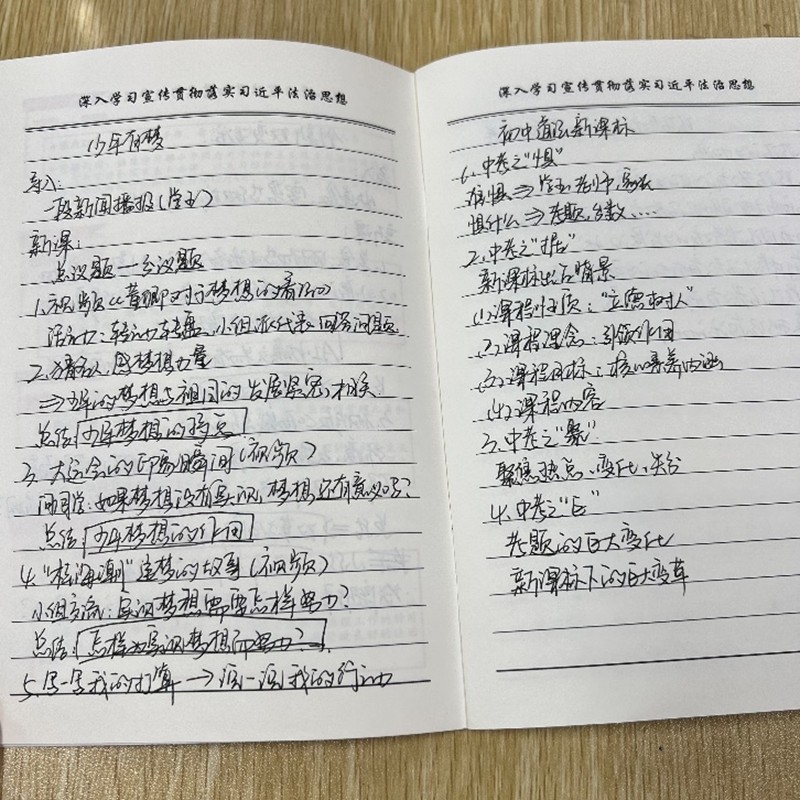 深入学习宣传贯彻落实习近平法治思想
少年有梦
导入:
一段新闻播报(学生)
新课:
总议题一分议题
1.视频《黄卿对于梦想的看法》
活动:转动转盘,小组派代表回答问题
2.猜名人,思梦想力量
⇒少年的梦想与祖国的发展紧密相关
总结:少年梦想的特点
3.大运会的印象瞬间(视频)
问同学:如果梦想没有实现,梦想还有意义吗?
总结:少年梦想的作用
4."桂海潮"追梦的故事(视频)
小组交流:实现梦想需要怎样努力?
总结:怎样为实现梦想而努力?
5.写一写我的打算→说一说我的行动
深入学习宣传贯彻落实习近平法治思想
初中道法新课标
1.中考之"惧"
谁惧⇒学生、老师、家长
惧什么⇒考题,分数....
2.中考之"据"
新课标出台背景
(1)课程性质:"立德树人"
(2)课程理念:引领作用
(3)课程目标:核心素养内涵
(4)课程内容
3.中考之"聚"
聚焦热点、变化、失分
4.中考之"巨"
考题的巨大变化
新课标下的巨大变革